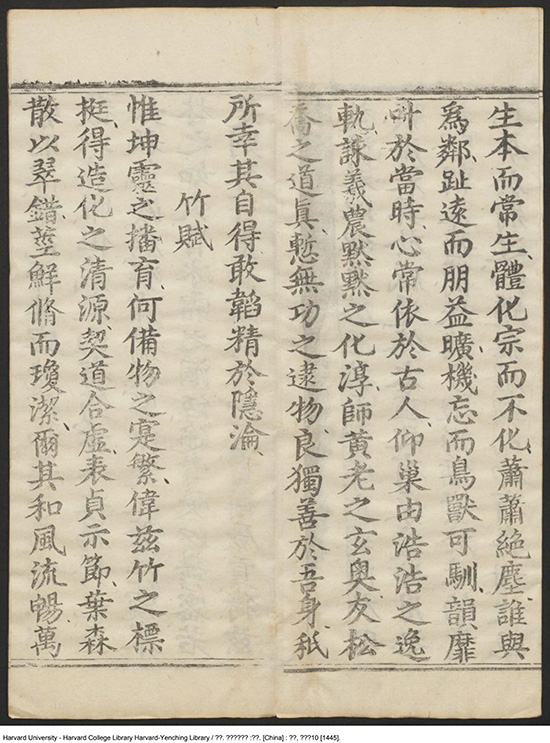 生本而常生體化宗而不化蕭蕭絶塵誰與
爲鄰趾遠而朋益曠機忘而鳥獸可馴韻靡
叶於當時心常依於古人仰巢由浩浩之逸
軌詠羲農默默之化淳師黃老之玄奥友松
喬之道眞慙無功之逮物良獨善於吾身秖
所幸其自得敢韜精於隱淪
竹賦
惟坤靈之播育何備物之寔繁偉茲竹之標
挺得造化之清源契道合虛表貞示節葉森
散以翠錯莖鮮脩而瓊潔爾其和風流暢萬
Harvard University - Harvard College Library Harvard-Yenching Library / ??. ?????? :??. [China] : ??, ???10 [1445].